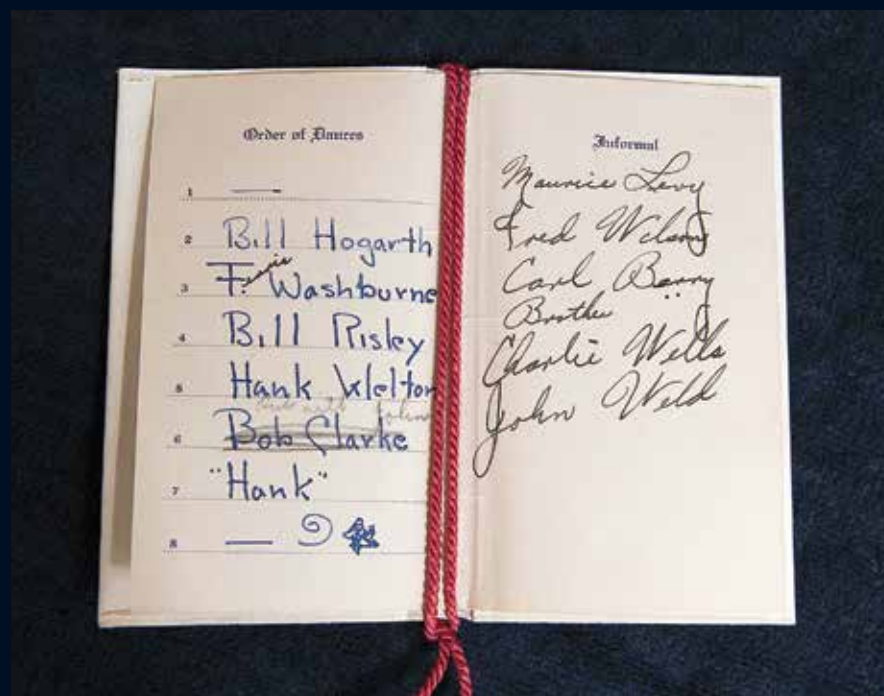 Order of Dances
1 —
2 Bill Hogarth
3 F. Washburne
4 Bill Risley
5 Hank Welton
6 Bob Clarke
7 "Hank"
8 —
Informal
Maurice Levy
Fred Wilson
Carl Barry
Brother "
Charlie Wells
John Weld